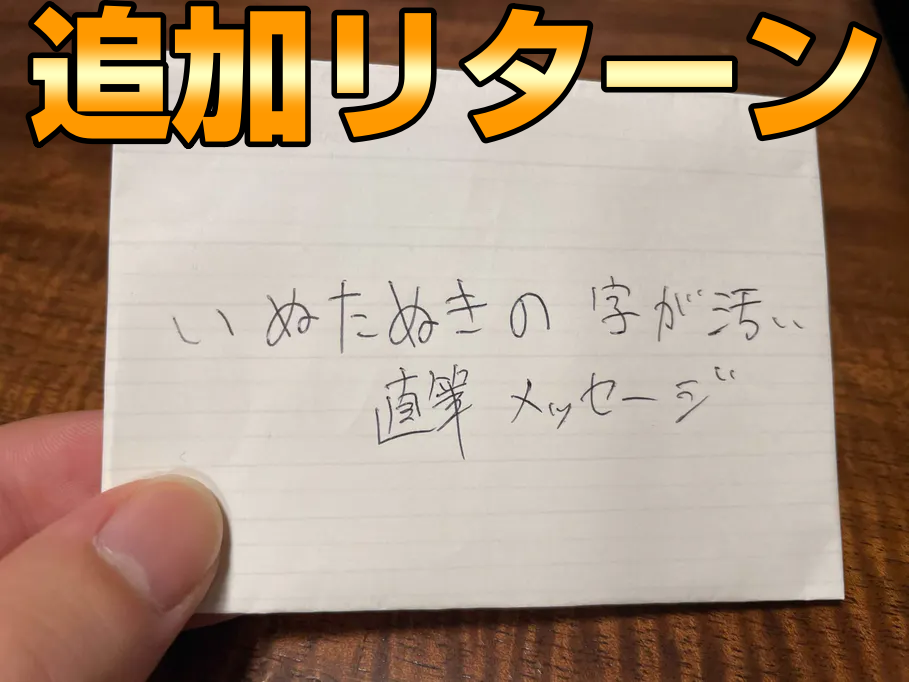 追加リターン
いぬたぬきの 字が汚い
直筆 メッセージ